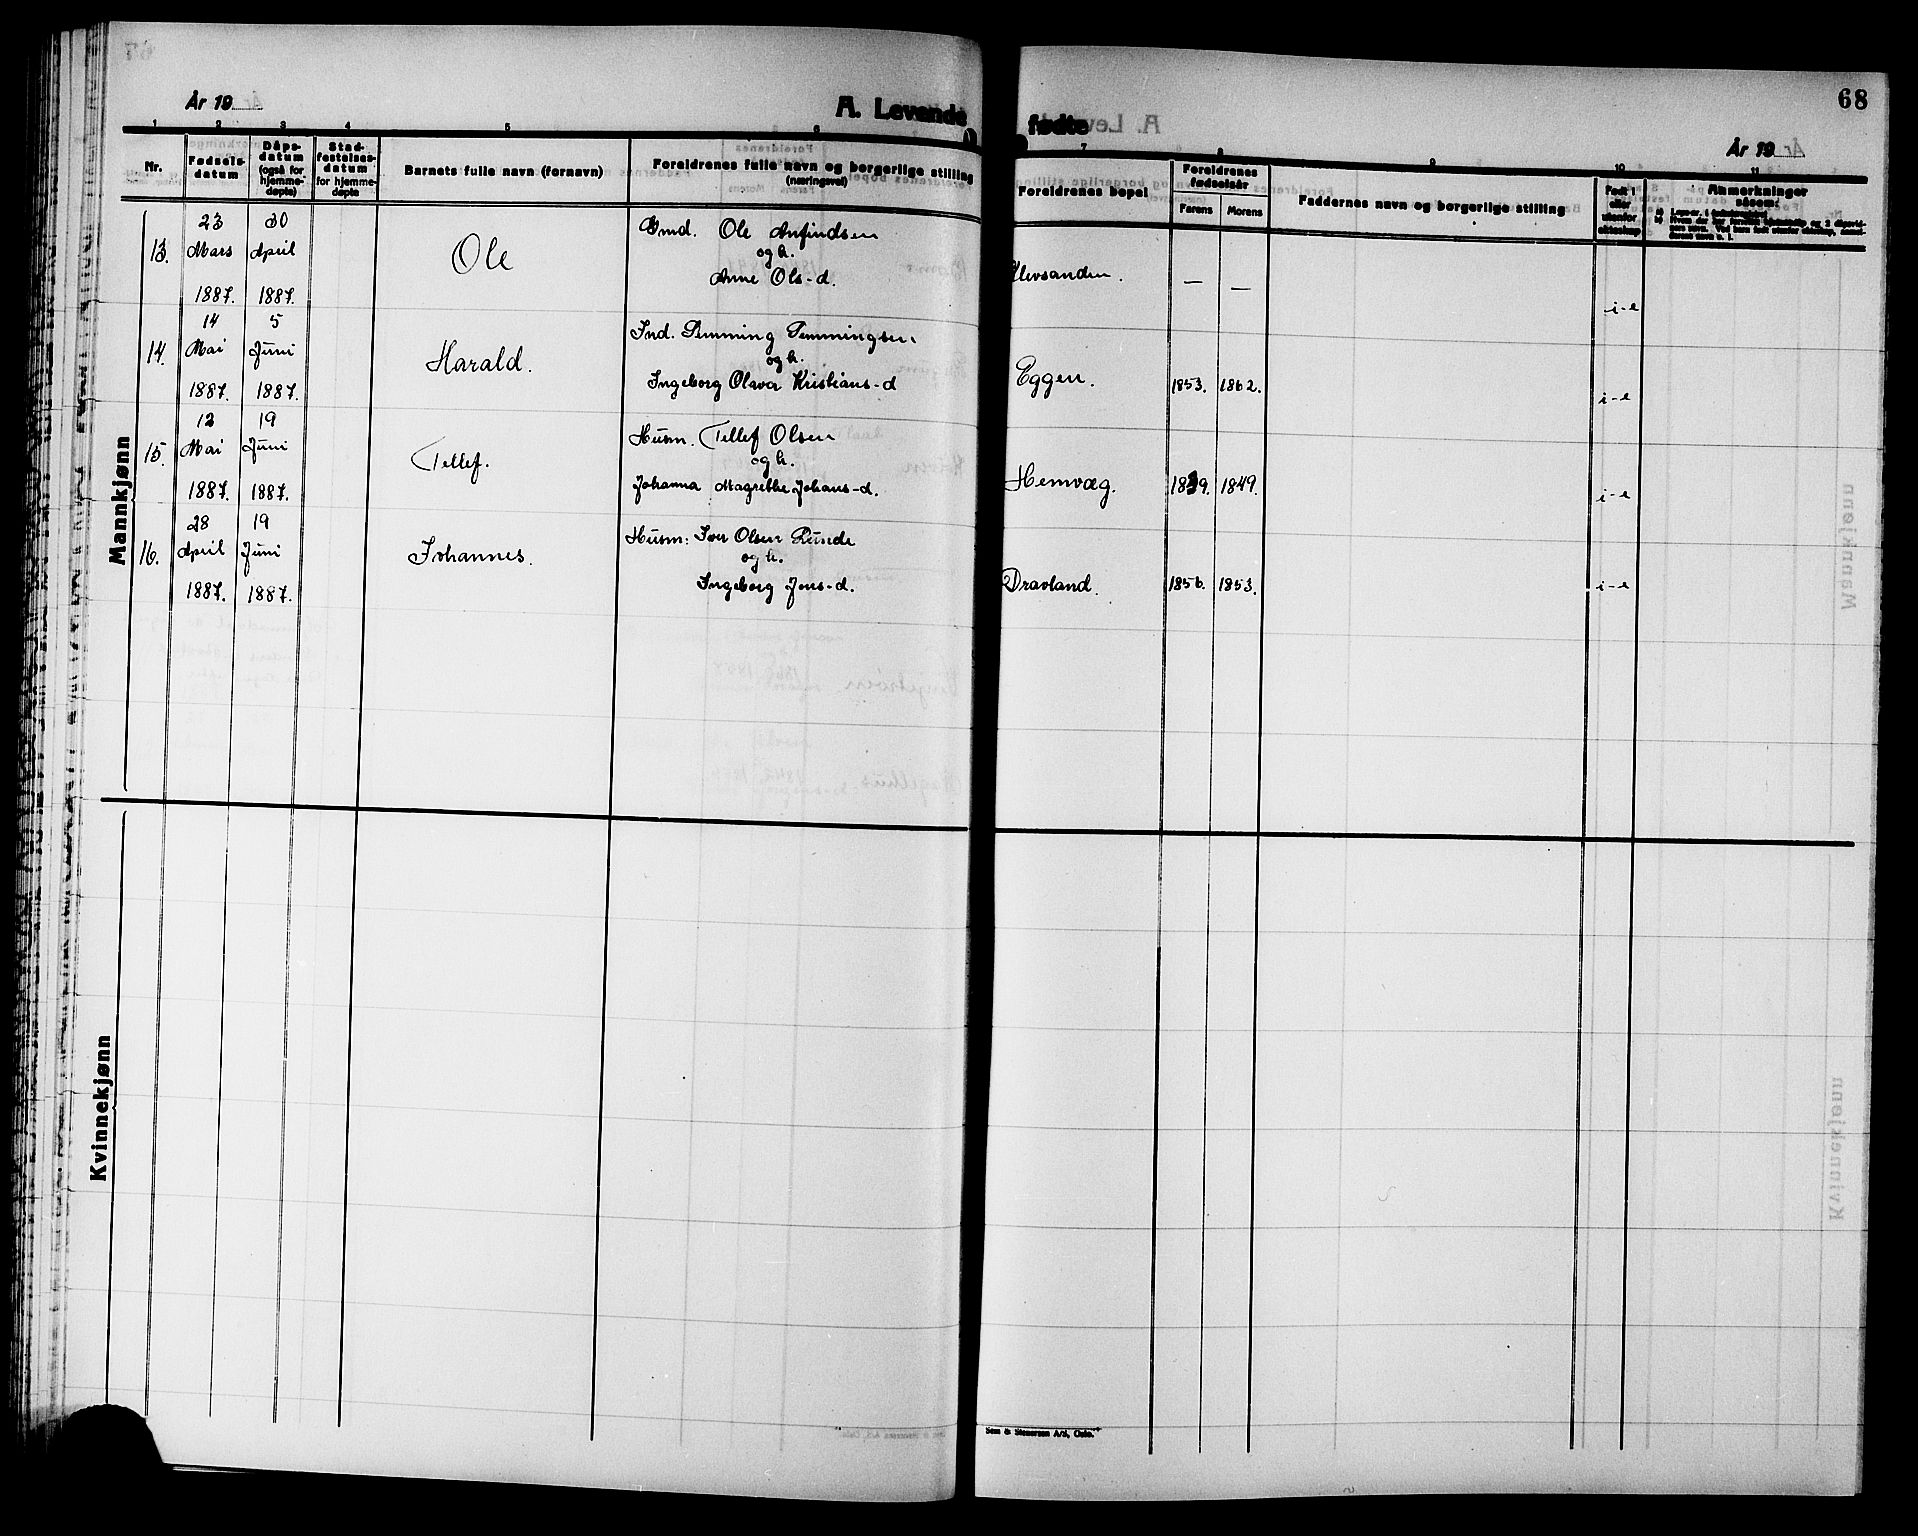 68
År 19
A. Levende fødte
År 19
1 2 3 4 5 6 7 8 9 10 11
Nr.
Fødsels-
datum
Dåps-
datum
(også for
hjemme-
døpte)
Stad-
festelses-
datum
for hjemme-
døpte
Barnets fulle navn (fornavn)
Foreldrenes fulle navn og borgerlige stilling
(næringsvei)
Foreldrenes bopel
Foreldrenes
fødselsår
Farens
Morens
Faddernes navn og borgerlige stilling
Født i
eller
utenfor
ekteskap
Anmerkninger
såsom:
Mannkjønn
13.
23
Mars
1887.
30
April
1887.
Ole
Gmd. Ole Anfindsen
og h.
Anne Ols-d.
Klevsanden.
—
—
i-e
14.
14
Mai
1887.
5
Juni
1887.
Harald.
Ind. Pemming Pemmingsen.
og h.
Ingeborg Olava Kristians-d
Eggen.
1853.
1862.
i-e
15.
12
Mai
1887.
19
Juni
1887.
Tellef.
Husm. Tellef Olsen
og h.
Johanna Magrethe Johans-d.
Hemvæg.
1839.
1849.
i-e
16.
28
April
1887.
19
Juni
1887.
Johannes.
Husm: Iver Olsen Runde
og h.
Ingeborg Jons-d.
Dravland.
1856.
1853.
i-e
Kvinnekjønn
Sem & Stenersen A/S, Oslo.